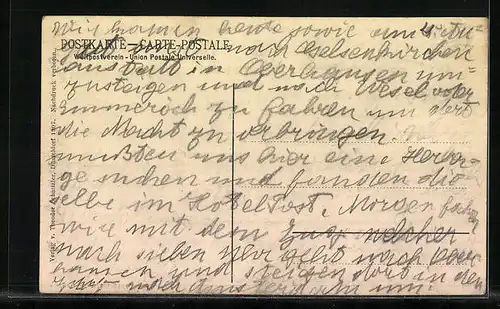 Wir kamen heute sowie um
POSTKARTE – CARTE POSTALE
Weltpostverein - Union Postale Universelle.
nach Gelsenkirchen
anstatt in Oberhausen um-
zusteigen und nach Wesel oder
Emmerich zu fahren um dort
die Nacht zu verbringen
mußten uns hier eine Herber-
ge suchen und fanden die-
selbe im Hotel Post. Morgen fahren
wir mit dem Zug welcher
nach sieben Uhr geht nach Ober-
hausen und steigen dort in den
Zug nach Amsterdam um.
Verlag v. Theodor Düsseldorf 1907. Nachdruck verboten.